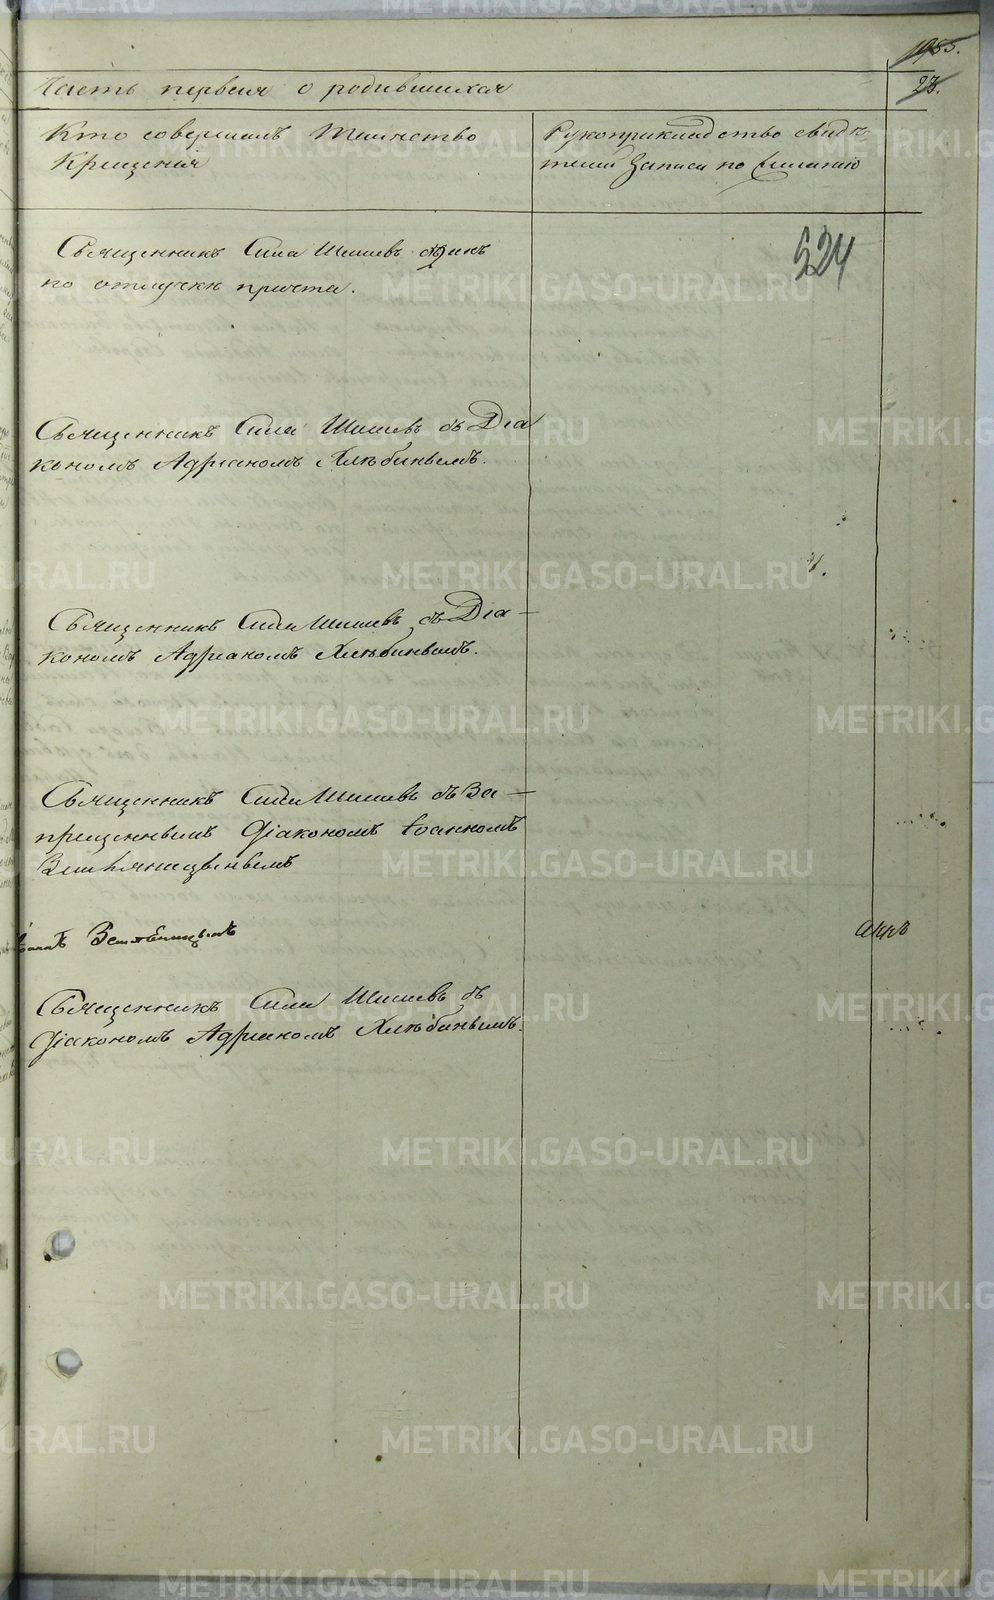 1955.
Часть первая о родившихся
28.
Кто совершалъ Таинство
Крещенія
Рукоприкладство свидѣ-
телей записи по желанію
524
Священникъ Сила Шишевъ одинъ
по отлучкѣ причта.
Священникъ Сила Шишевъ съ Діа
кономъ Адріаномъ Хлѣбинымъ.
Священникъ Сила Шишевъ съ Діа-
кономъ Адріаномъ Хлѣбинымъ.
Священникъ Сила Шишевъ съ За-
прещеннымъ Діакономъ Іоанномъ
Земляницынымъ
Земляницынъ
Священникъ Сила Шишевъ съ
Діакономъ Адріаномъ Хлѣбинымъ.
METRIKI.GASO-URAL.RU